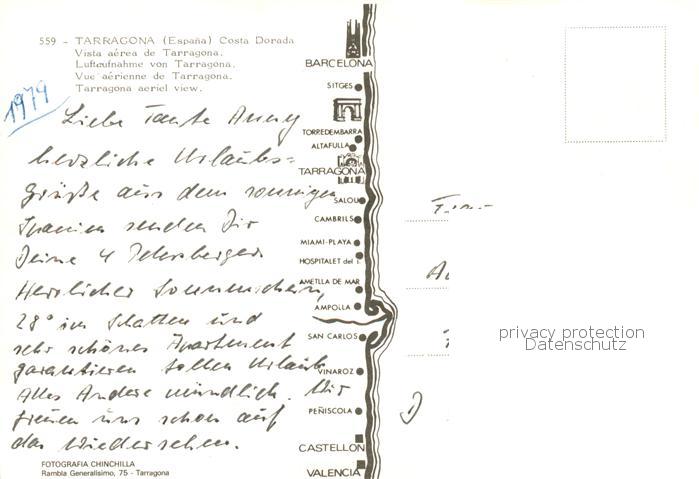 559 - TARRAGONA (España) Costa Dorada
Vista aérea de Tarragona.
Luftaufnahme von Tarragona.
Vue aérienne de Tarragona.
Tarragona aeriel view.
1979
Liebe Tante Anny
herzliche Urlaubs=
grüße aus dem sonnigen
Spanien senden Dir
Deine 4 Petersberger
Herrlicher Sonnenschein,
28° im Schatten und
sehr schönes Apartment
garantieren tollen Urlaub
Alles Andere mündlich. Wir
freuen uns schon auf
das Wiedersehen.
FOTOGRAFIA CHINCHILLA
Rambla Generalísimo, 75 - Tarragona
BARCELONA
SITGES
TORREDEMBARRA
ALTAFULLA
TARRAGONA
SALOU
CAMBRILS
MIAMI-PLAYA
HOSPITALET del I.
AMETLLA DE MAR
AMPOLLA
SAN CARLOS
VINAROZ
PEÑISCOLA
CASTELLON
VALENCIA
privacy protection
Datenschutz